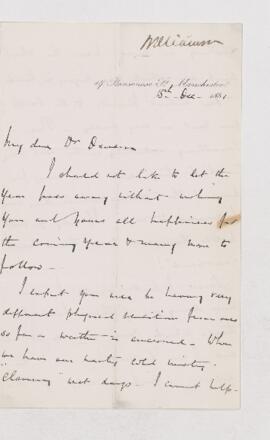 Williamson
Manchester
5th Dec 1881
My dear Dr
I should not like to let the
Year pass away without wishing
You and Yours all happiness for
the coming Year & many more to
follow.
I expect you will be having very
different physical sensations from ours
so far as weather is concerned. When
we have our nasty cold misty
"clammy" wet days. I cannot help